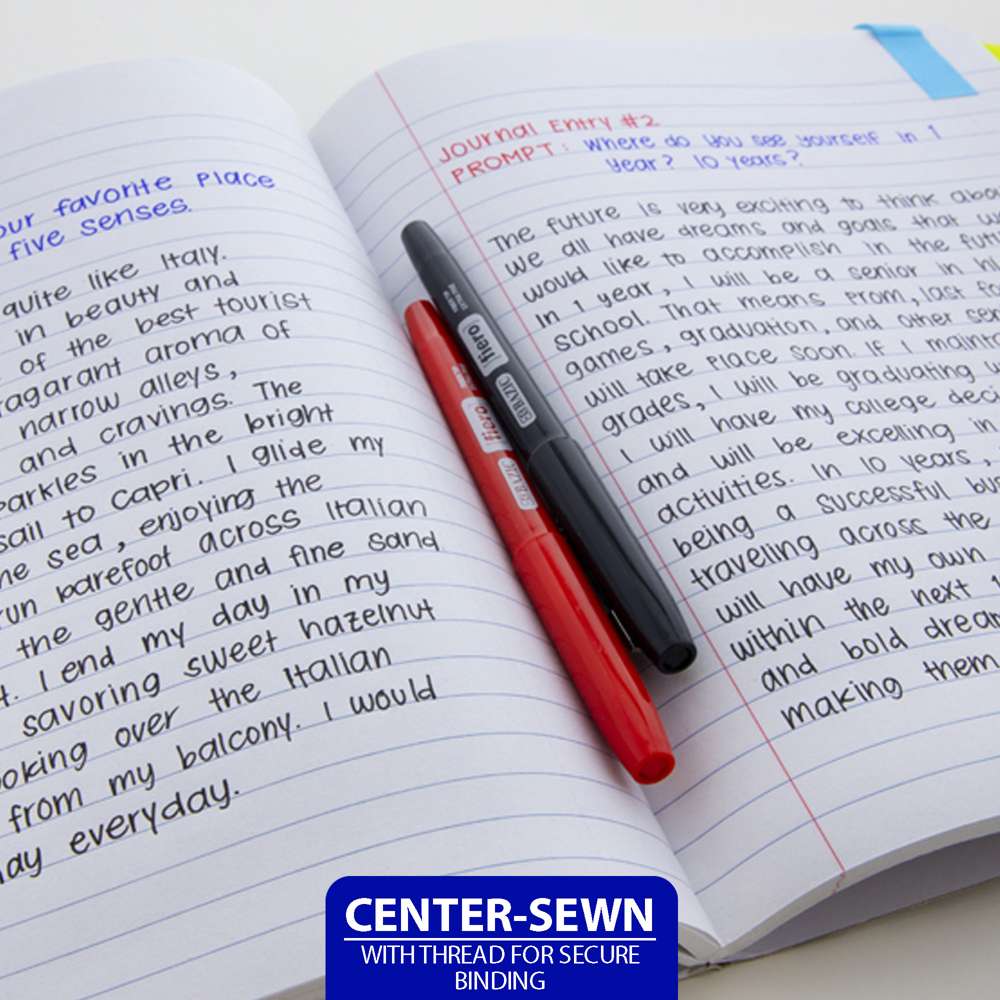 our favorite Place
five senses.
quite like Italy.
in beauty and
of the best tourist
ragarant aroma of
narrow alleys,
and cravings. The
parkles in the bright
sail to Capri. I glide my
he sea, enjoying the
run barefoot across Italian
the gentle and fine sand
t. I end my day in my
savoring sweet hazelnut
ooking over the Italian
from my balcony. I would
day everyday.
Journal Entry #2
PROMPT: Where do you see yourself in 1
year? 10 years?
The future is very exciting to think abou
we all have dreams and goals that w
would like to accomplish in the futur
In 1 year, I will be a senior in hi
school. That means prom, last fo
games, graduation, and other sen
will take place soon. If I maintai
grades, I will be graduating w
I will have my college deci
and will be excelling in
activities. In 10 years,
being a successful bus
traveling across the
will have my own
within the next
and bold dream
making them
fiero
BAZIC
fiero
BAZIC
CENTER-SEWN
WITH THREAD FOR SECURE
BINDING